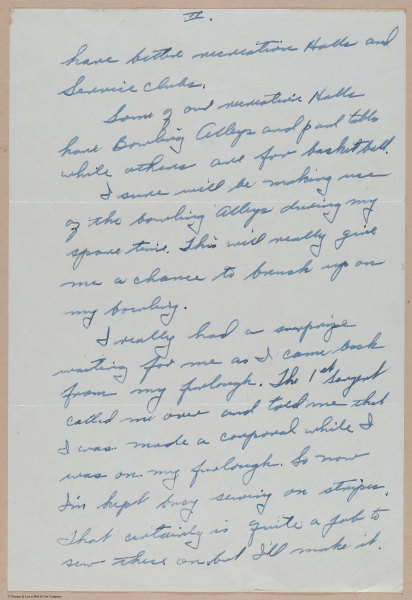 II.
have better recreation Halls and
Service Clubs.
Some of our recreation Halls
have Bowling Alleys and pool tables
while others are for basketball.
I sure will be making use
of the bowling Alleys during my
spare time. This will really give
me a chance to brush up on
my bowling.
I really had a surprize
waiting for me as I came back
from my furlough. The 1st Sargent
called me over and told me that
I was made a corporal while I
was on my furlough. So now
I'm kept busy sewing on stripes.
That certainly is quite a job to
sew these on but I'll make it.